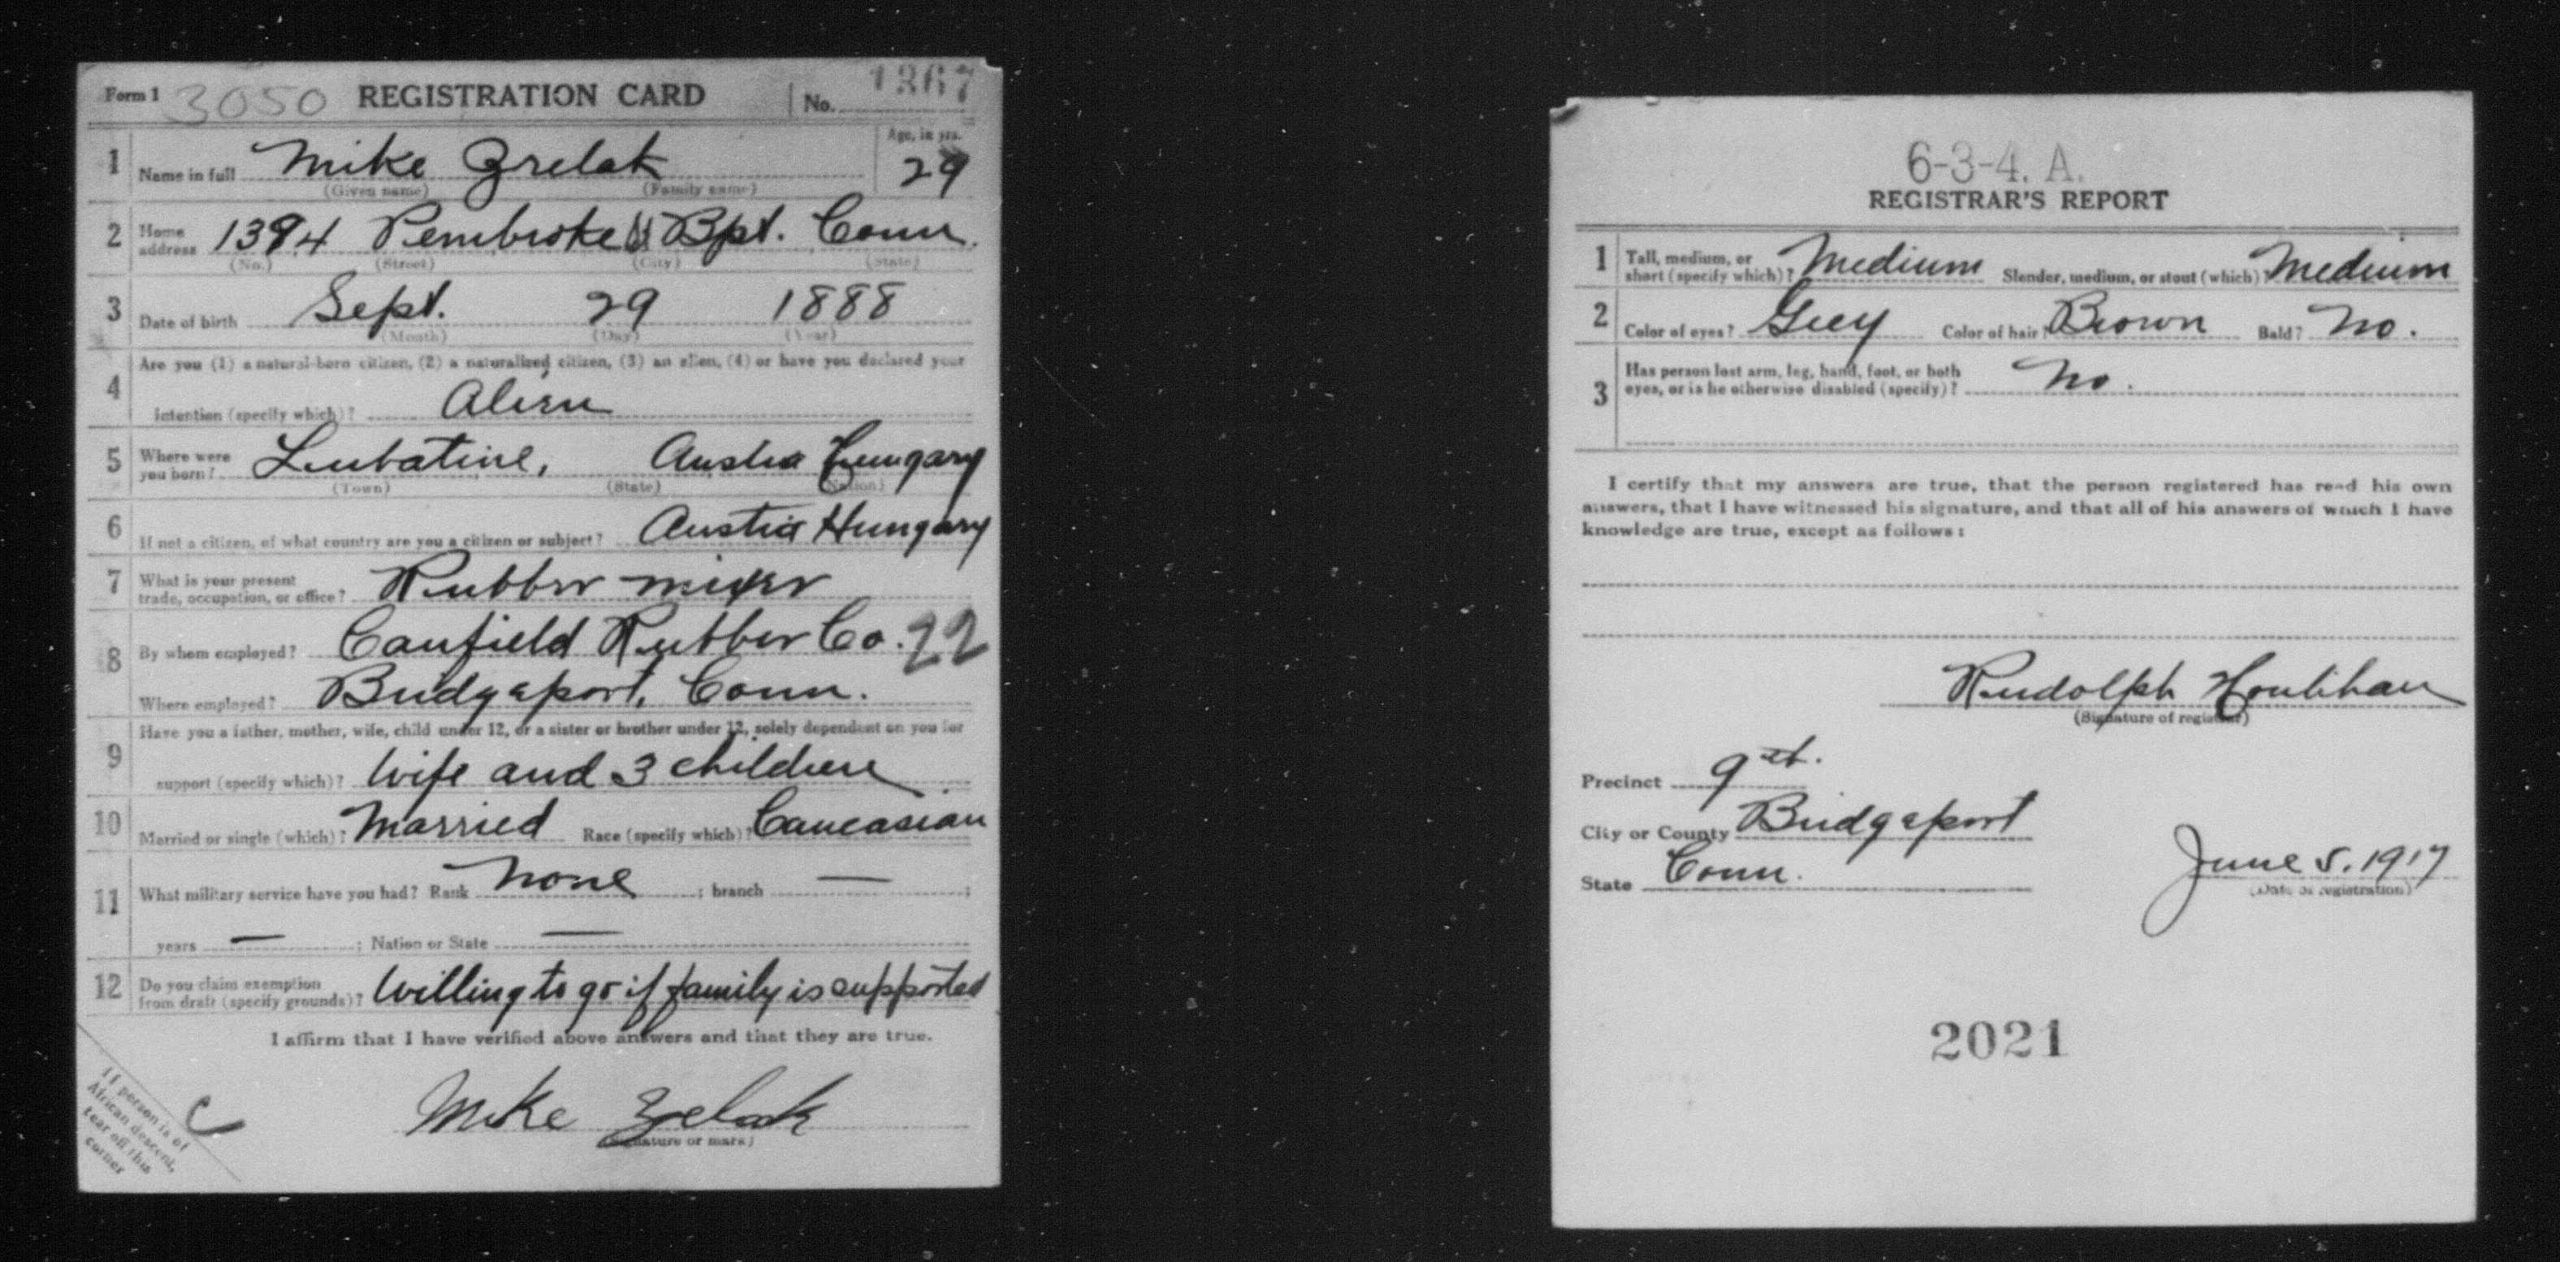 Form 1 3050 REGISTRATION CARD No. 1367
1 Name in full Mike Zrelak Age, in yrs. 29
(Given name) (Family name)
2 Home address 1394 Pembroke St Bpt. Conn.
(No.) (Street) (City) (State)
3 Date of birth Sept. 29 1888
(Month) (Day) (Year)
4 Are you (1) a natural-born citizen, (2) a naturalized citizen, (3) an alien, (4) or have you declared your
intention (specify which)? Alien
5 Where were you born? Lubatine, Austria Hungary
(Town) (State) (Nation)
6 If not a citizen, of what country are you a citizen or subject? Austria Hungary
7 What is your present trade, occupation, or office? Rubber mixer
8 By whom employed? Canfield Rubber Co. 22
Where employed? Bridgeport, Conn.
9 Have you a father, mother, wife, child under 12, or a sister or brother under 12, solely dependent on you for
support (specify which)? Wife and 3 children
10 Married or single (which)? Married Race (specify which)? Caucasian
11 What military service have you had? Rank None ; branch — ;
years — ; Nation or State —
12 Do you claim exemption from draft (specify grounds)? Willing to go if family is supported
I affirm that I have verified above answers and that they are true.
Mike Zrelak
(Signature or mark)
If person is of
African descent,
tear off this
corner
C
6-3-4. A.
REGISTRAR'S REPORT
1 Tall, medium, or short (specify which)? Medium Slender, medium, or stout (which)? Medium
2 Color of eyes? Grey Color of hair? Brown Bald? No.
3 Has person lost arm, leg, hand, foot, or both
eyes, or is he otherwise disabled (specify)? No.
I certify that my answers are true, that the person registered has read his own
answers, that I have witnessed his signature, and that all of his answers of which I have
knowledge are true, except as follows:
Rudolph Houlihan
(Signature of registrar)
Precinct 9
City or County Bridgeport
State Conn.
June 5, 1917
(Date of registration)
2021